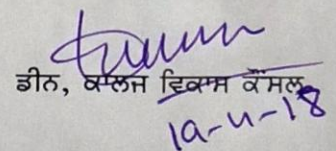 ਡੀਨ, ਕਾਲਜ ਵਿਕਾਸ ਕੌਂਸਲ
19-4-18